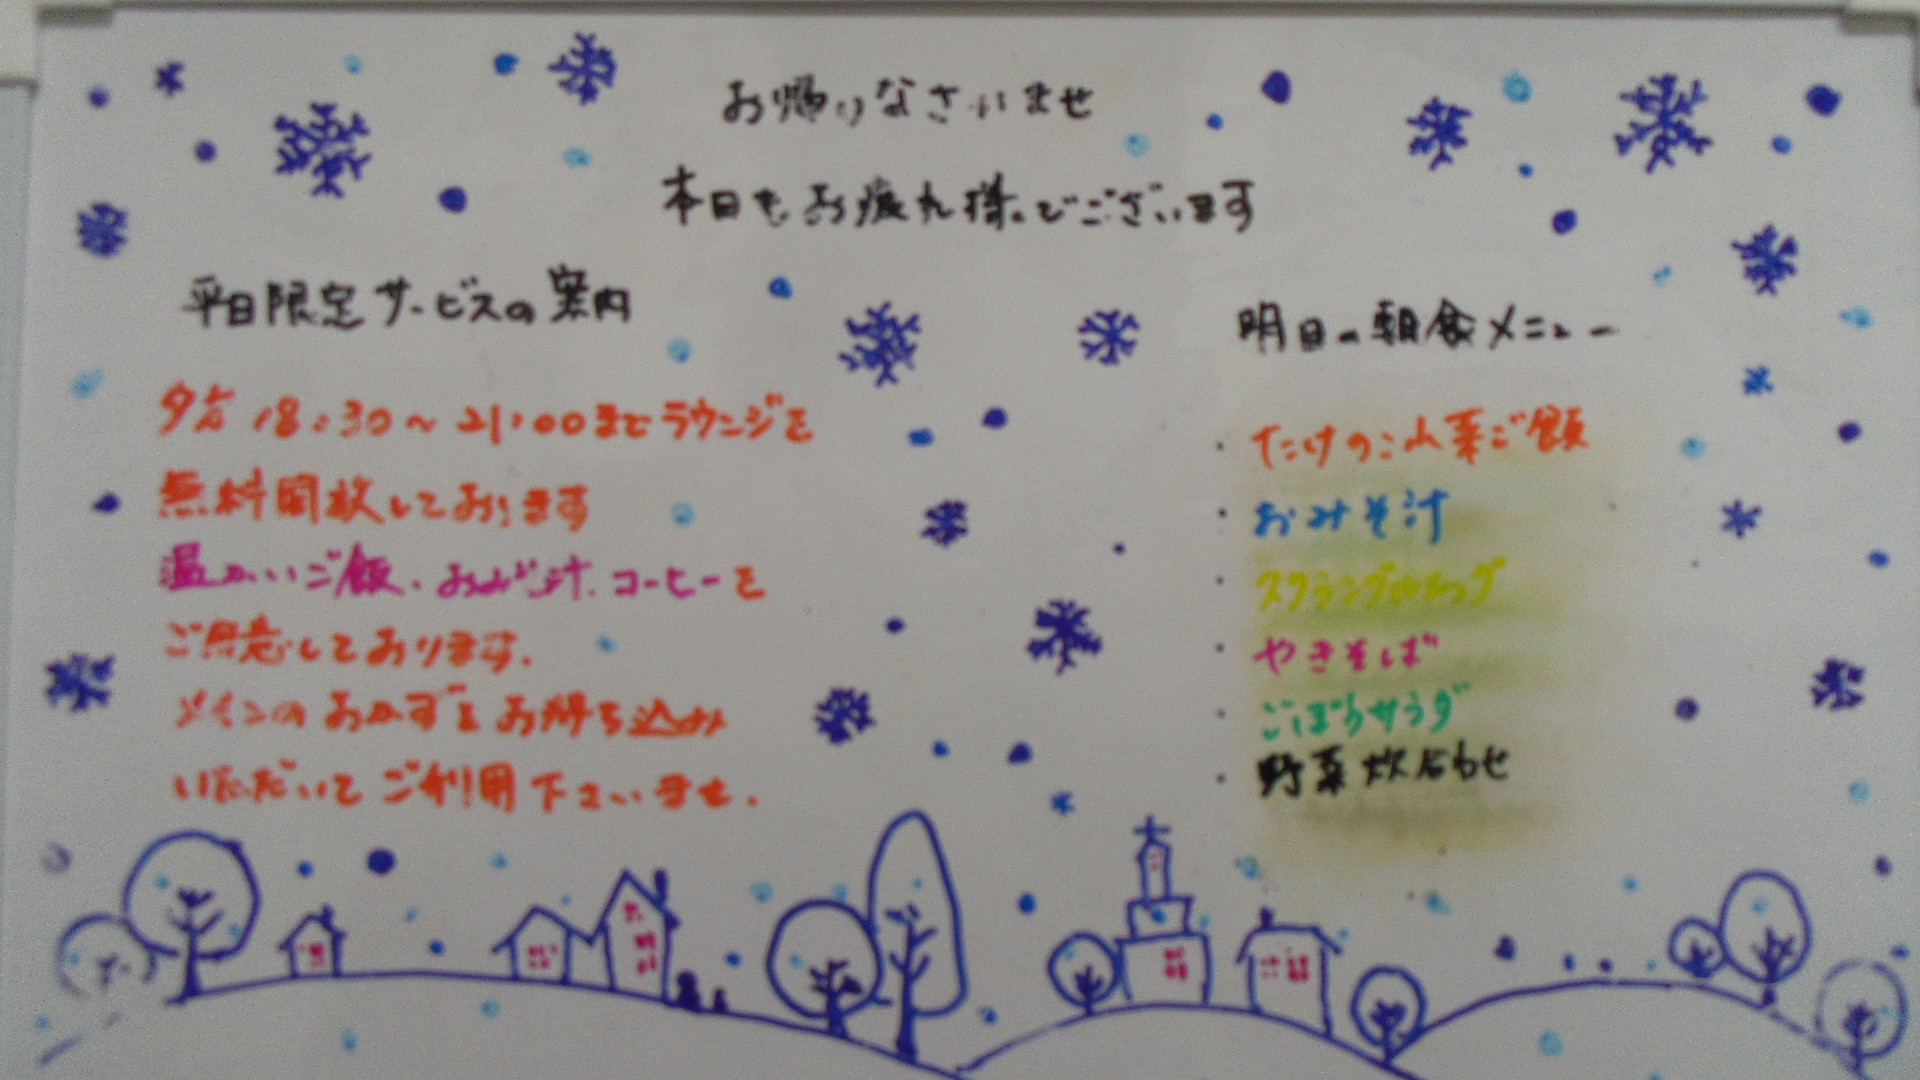 お帰りなさいませ
本日もお疲れ様でございます
平日限定サービスの案内
夕方 18:30～21:00までラウンジを
無料開放しております
温かいご飯、おみそ汁、コーヒーを
ご用意しております。
メインのおかずをお持ち込み
いただいてご利用下さいませ。
明日の朝食メニュー
・たけのこ山菜ご飯
・おみそ汁
・スクランブルエッグ
・やきそば
・ごぼうサラダ
・野菜炊合わせ